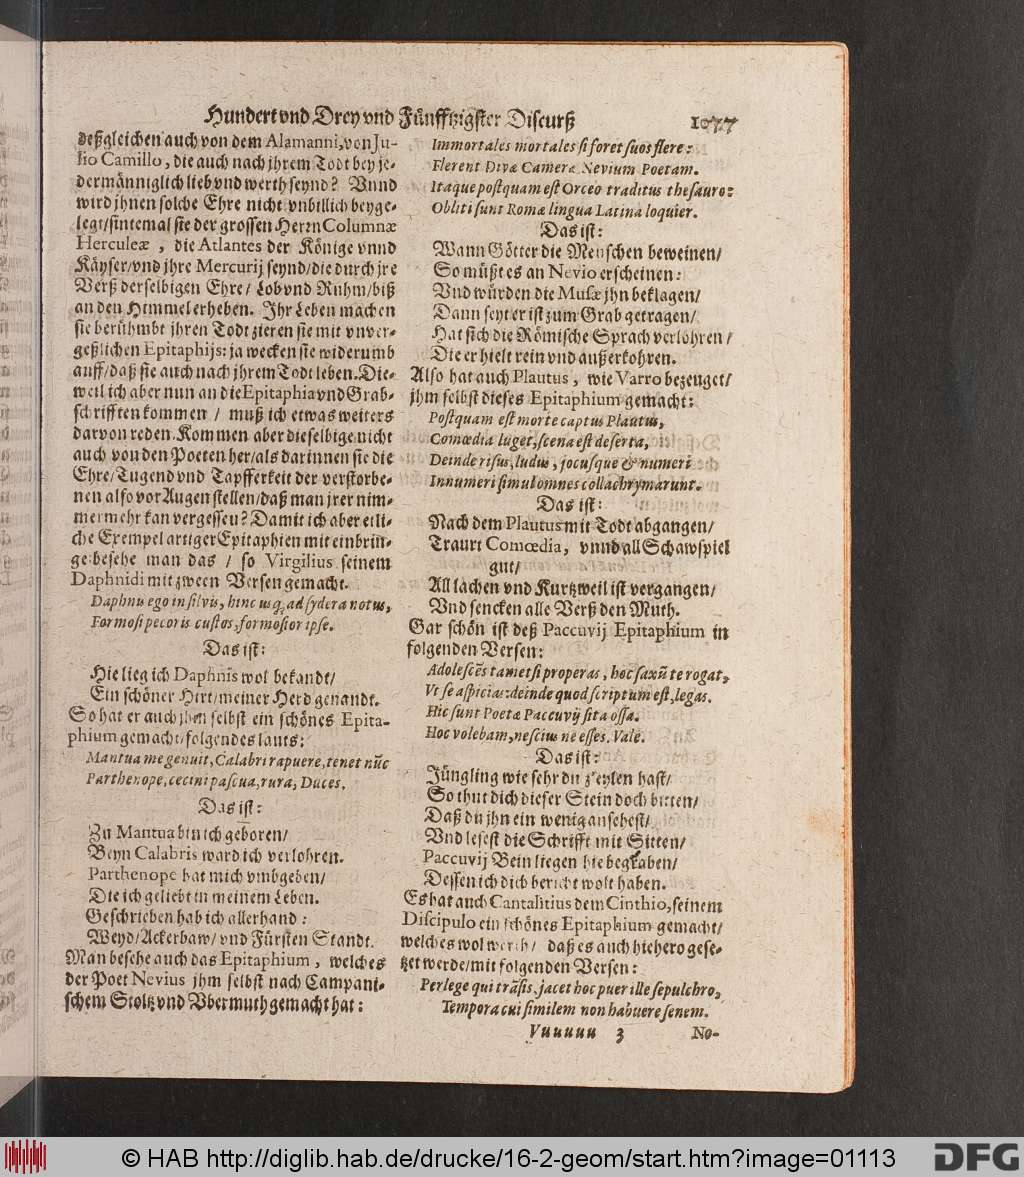 Hundert vnd Drey vnd Fünfftzigster Discurß 1077
deßgleichen auch von dem Alamanni, von Ju-
lio Camillo, die auch nach jhrem Todt bey je-
dermänniglich lieb vnd werth seynd? Vnnd
wird jhnen solche Ehre nicht vnbillich beyge-
legt/ sintemal sie der grossen Herrn Columnæ
Herculeæ, die Atlantes der Könige vnnd
Käyser/ vnd jhre Mercurij seynd/ die durch jre
Verß derselbigen Ehre/ Lob vnd Ruhm/ biß
an den Himmel erheben. Ihr Leben machen
sie berühmbt jhren Todt zieren sie mit vnver-
geßlichen Epitaphijs: ja wecken sie widerumb
auff/ daß sie auch nach jhrem Todt leben. Die-
weil ich aber nun an die Epitaphia vnd Grab-
schrifften kommen/ muß ich etwas weiters
darvon reden. Kommen aber dieselbige nicht
auch von den Poeten her/ als darinnen sie die
Ehre/ Tugend vnd Tapfferkeit der verstorbe-
nen also vor Augen stellen/ daß man jrer nim-
mermehr kan vergessen? Damit ich aber etli-
che Exempel artiger Epitaphien mit einbrin-
ge: besehe man das/ so Virgilius seinem
Daphnidi mit zween Versen gemacht.
Daphnis ego in silvis, hinc usq; ad sydera notus,
Formosi pecoris custos, formosior ipse.
Das ist:
Hie lieg ich Daphnis wol bekandt/
Ein schöner Hirt/ meiner Herd genandt.
So hat er auch jhm selbst ein schönes Epita-
phium gemacht/ folgendes lauts:
Mantua me genuit, Calabri rapuere, tenet nũc
Parthenope, cecini pascua, rura, Duces.
Das ist:
Zu Mantua bin ich geboren/
Beyn Calabris ward ich verlohren.
Parthenope hat mich vmbgeben/
Die ich geliebt in meinem Leben.
Geschrieben hab ich allerhand:
Weyd/ Ackerbaw/ vnd Fürsten Standt.
Man besehe auch das Epitaphium, welches
der Poet Nevius jhm selbst nach Campani-
schem Stoltz vnd Vbermuth gemacht hat:
Immortales mortales si foret suos flere:
Flerent Divæ Cameræ Nevium Poetam.
Itaque postquam est Orceo traditus thesauro:
Obliti sunt Romæ lingua Latina loquier.
Das ist:
Wann Götter die Menschen beweinen/
So müßt es an Nevio erscheinen:
Vnd würden die Musæ jhn beklagen/
Dann seyt er ist zum Grab getragen/
Hat sich die Römische Sprach verlohren/
Die er hielt rein vnd außerkohren.
Also hat auch Plautus, wie Varro bezeuget/
jhm selbst dieses Epitaphium gemacht:
Postquam est morte captus Plautus,
Comœdia luget, scena est deserta,
Deinde risus, ludus, jocusque & numeri
Innumeri simul omnes collachrymarunt.
Das ist:
Nach dem Plautus mit Todt abgangen/
Traurt Comœdia, vnnd all Schawspiel
gut/
All lachen vnd Kurtzweil ist vergangen/
Vnd sencken alle Verß den Muth.
Gar schön ist deß Paccuvij Epitaphium in
folgenden Versen:
Adolescẽs tametsi properas, hoc saxũ te rogat,
Vt se aspicias: deinde quod scriptum est, legas.
Hic sunt Poetæ Paccuvij sita ossa.
Hoc volebam, nescius ne esses. Vale.
Das ist:
Jüngling wie sehr du zeylen hast/
So thut dich dieser Stein doch bitten/
Daß du jhn ein wenig ansehest/
Vnd lesest die Schrifft mit Sitten/
Paccuvij Bein liegen hie begraben/
Dessen ich dich bericht wolt haben.
Es hat auch Cantalitius dem Cinthio, seinem
Discipulo ein schönes Epitaphium gemacht/
welches wol werth/ daß es auch hiehero gese-
tzet werde/ mit folgenden Versen:
Perlege qui trãsis, jacet hoc puer ille sepulchro,
Tempora cui similem non habuere senem.
Vuuuuu 3 No-
© HAB http://diglib.hab.de/drucke/16-2-geom/start.htm?image=01113
DFG